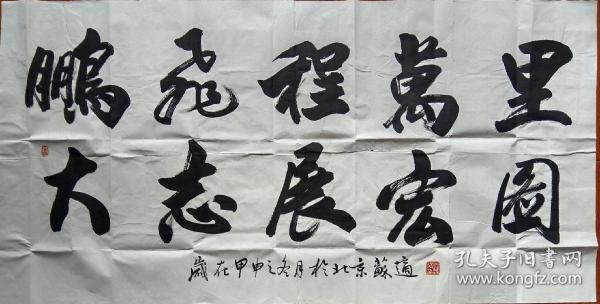 鵬飛程萬里
大志展宏圖
歲在甲申之冬月於北京蘇適
孔夫子旧书网
www.kongfz.com